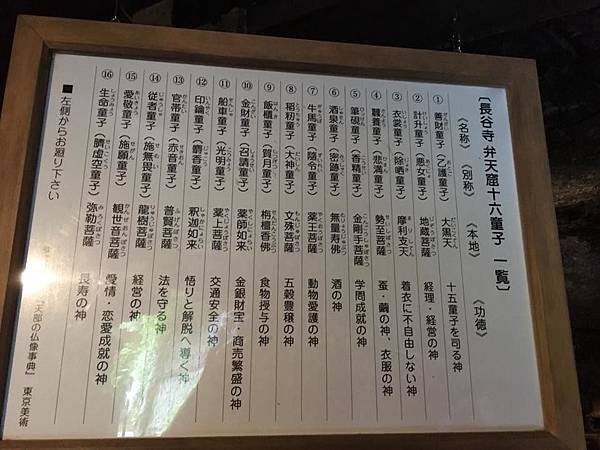 〔長谷寺 弁天窟十六童子 一覧〕
《名称》 《別称》 《本地》 《功徳》
① 善財童子 (乙護童子) 大黒天 十五童子を司る神
② 計升童子 (悪女童子) 地蔵菩薩 経理・経営の神
③ 衣裳童子 (除哂童子) 摩利支天 着衣に不自由しない神
④ 蠶養童子 (悲満童子) 勢至菩薩 蚕・繭の神、衣服の神
⑤ 筆硯童子 (香精童子) 金剛手菩薩 学問成就の神
⑥ 酒泉童子 (密跡童子) 無量寿佛 酒の神
⑦ 牛馬童子 (随令童子) 薬王菩薩 動物愛護の神
⑧ 稲籾童子 (大神童子) 文殊菩薩 五穀豊穣の神
⑨ 飯櫃童子 (質月童子) 栴檀香佛 食物授与の神
⑩ 金財童子 (召請童子) 薬師如来 金銀財宝・商売繁盛の神
⑪ 船車童子 (光明童子) 薬上菩薩 交通安全の神
⑫ 印鑰童子 (麝香童子) 釈迦如来 悟りと解脱へ導く神
⑬ 官帯童子 (赤音童子) 普賢菩薩 法を守る神
⑭ 従者童子 (施無畏童子) 龍樹菩薩 経営の神
⑮ 愛敬童子 (施願童子) 観世音菩薩 愛情・恋愛成就の神
⑯ 生命童子 (臍虚空童子) 弥勒菩薩 長寿の神
■左側からお廻り下さい
『天部の仏像事典』 東京美術